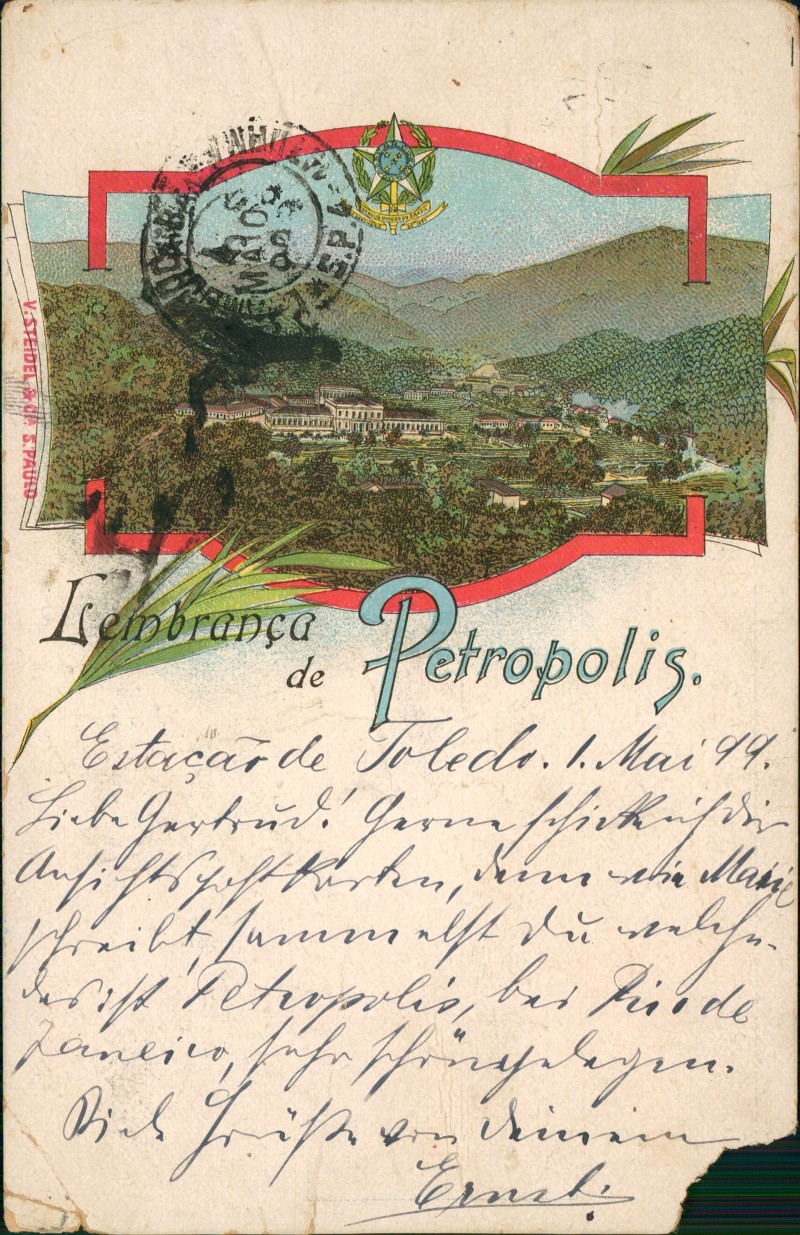 V. STEIDEL & CA. S. PAULO
Lembrança
de Petropolis.
Estação de Toledo. 1. Mai 99.
Liebe Gertrud! Gerne schicke ich dir
Ansichtspostkarten, denn wie Marie
schreibt, sammelst du welche.
das ist Petropolis, bei Rio de
Janeiro, sehr schön gelegen.
Viele Grüße von deinem
Ernst.